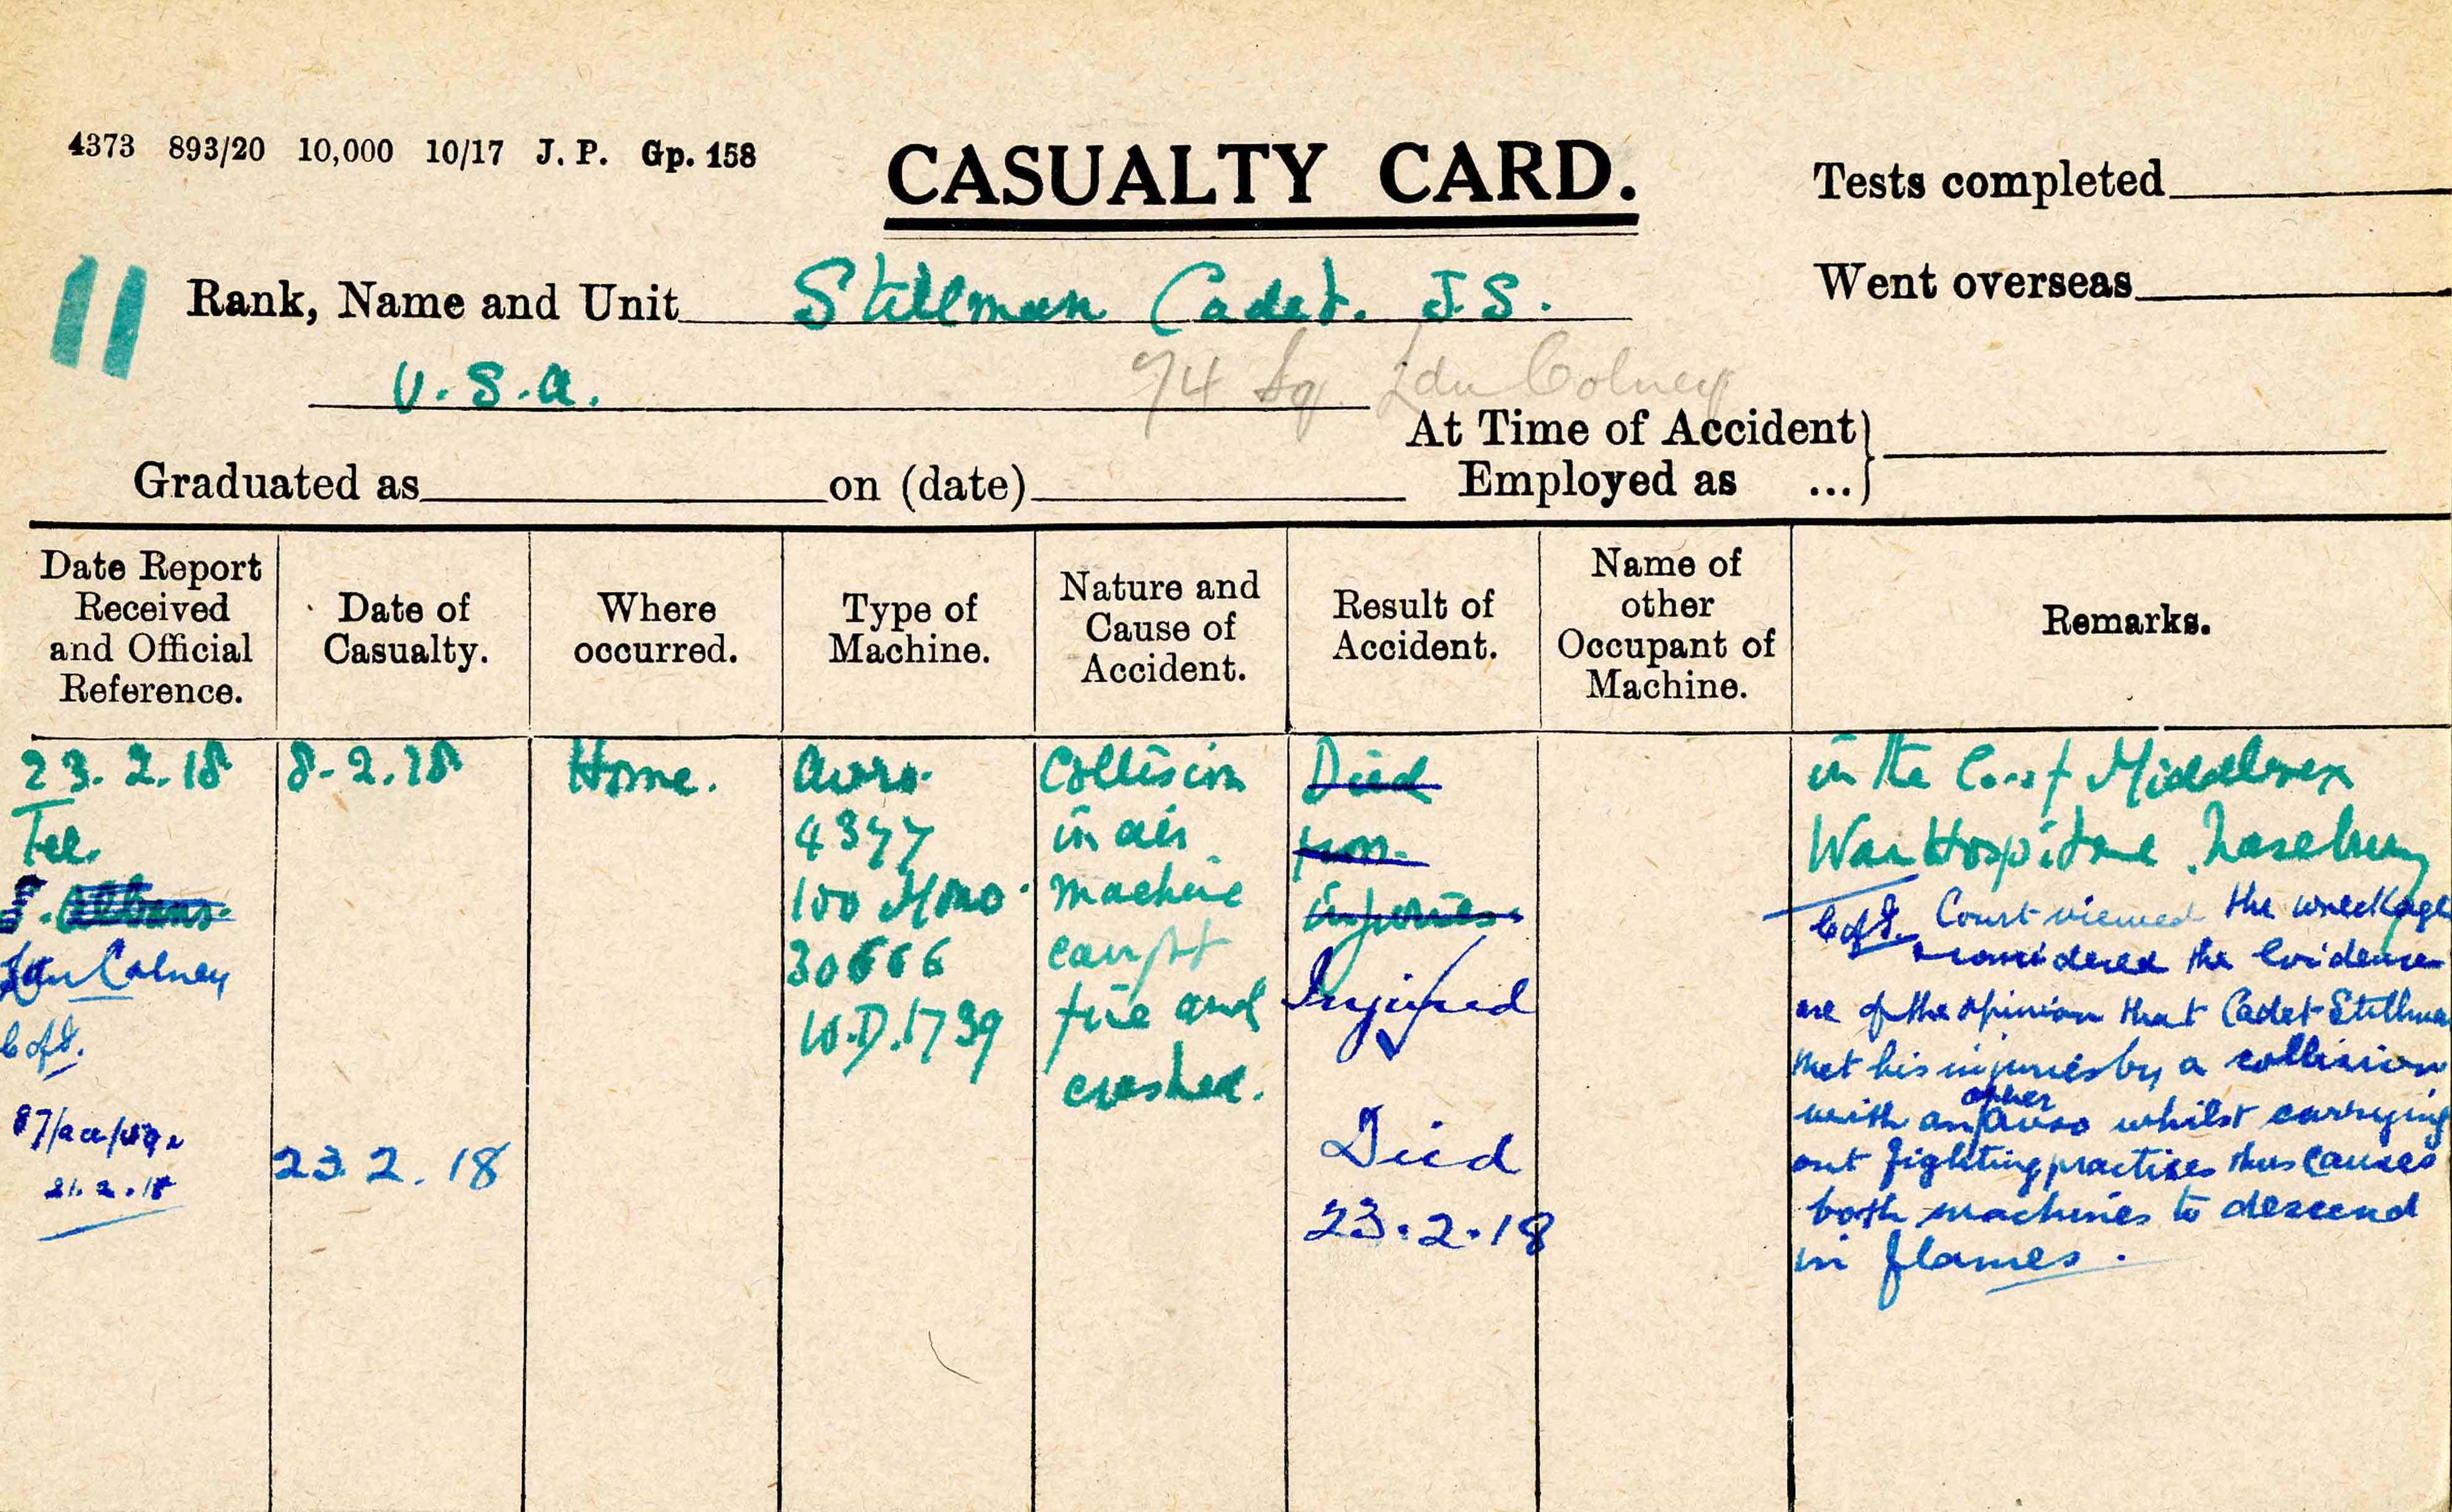 4373 893/20 10,000 10/17 J. P. Gp. 158
CASUALTY CARD.
Tests completed
Went overseas
11
Rank, Name and Unit Stillman Cadet. J.S.
U.S.A.
74 Sq. Ldn Colney
At Time of Accident
Employed as ...
Graduated as on (date)
Date Report
Received
and Official
Reference.
Date of
Casualty.
Where
occurred.
Type of
Machine.
Nature and
Cause of
Accident.
Result of
Accident.
Name of
other
Occupant of
Machine.
Remarks.
23.2.18
Tel.
Albans.
Ldn Colney
C of I.
21.2.18
8.2.18
23.2.18
Home.
Avro.
4377
100 Mono.
30666
W.D.1739
Collision
in air
machine
caught
fire and
crashed.
Died
from
injuries.
Injured
Died
23.2.18
in the Co. of Middlesex
War Hospital
C of I. Court viewed the wreckage
& considered the evidence
are of the opinion that Cadet Stillman
met his injuries by a collision
with another Avro whilst carrying
out fighting practices thus causes
both machines to descend
in flames.